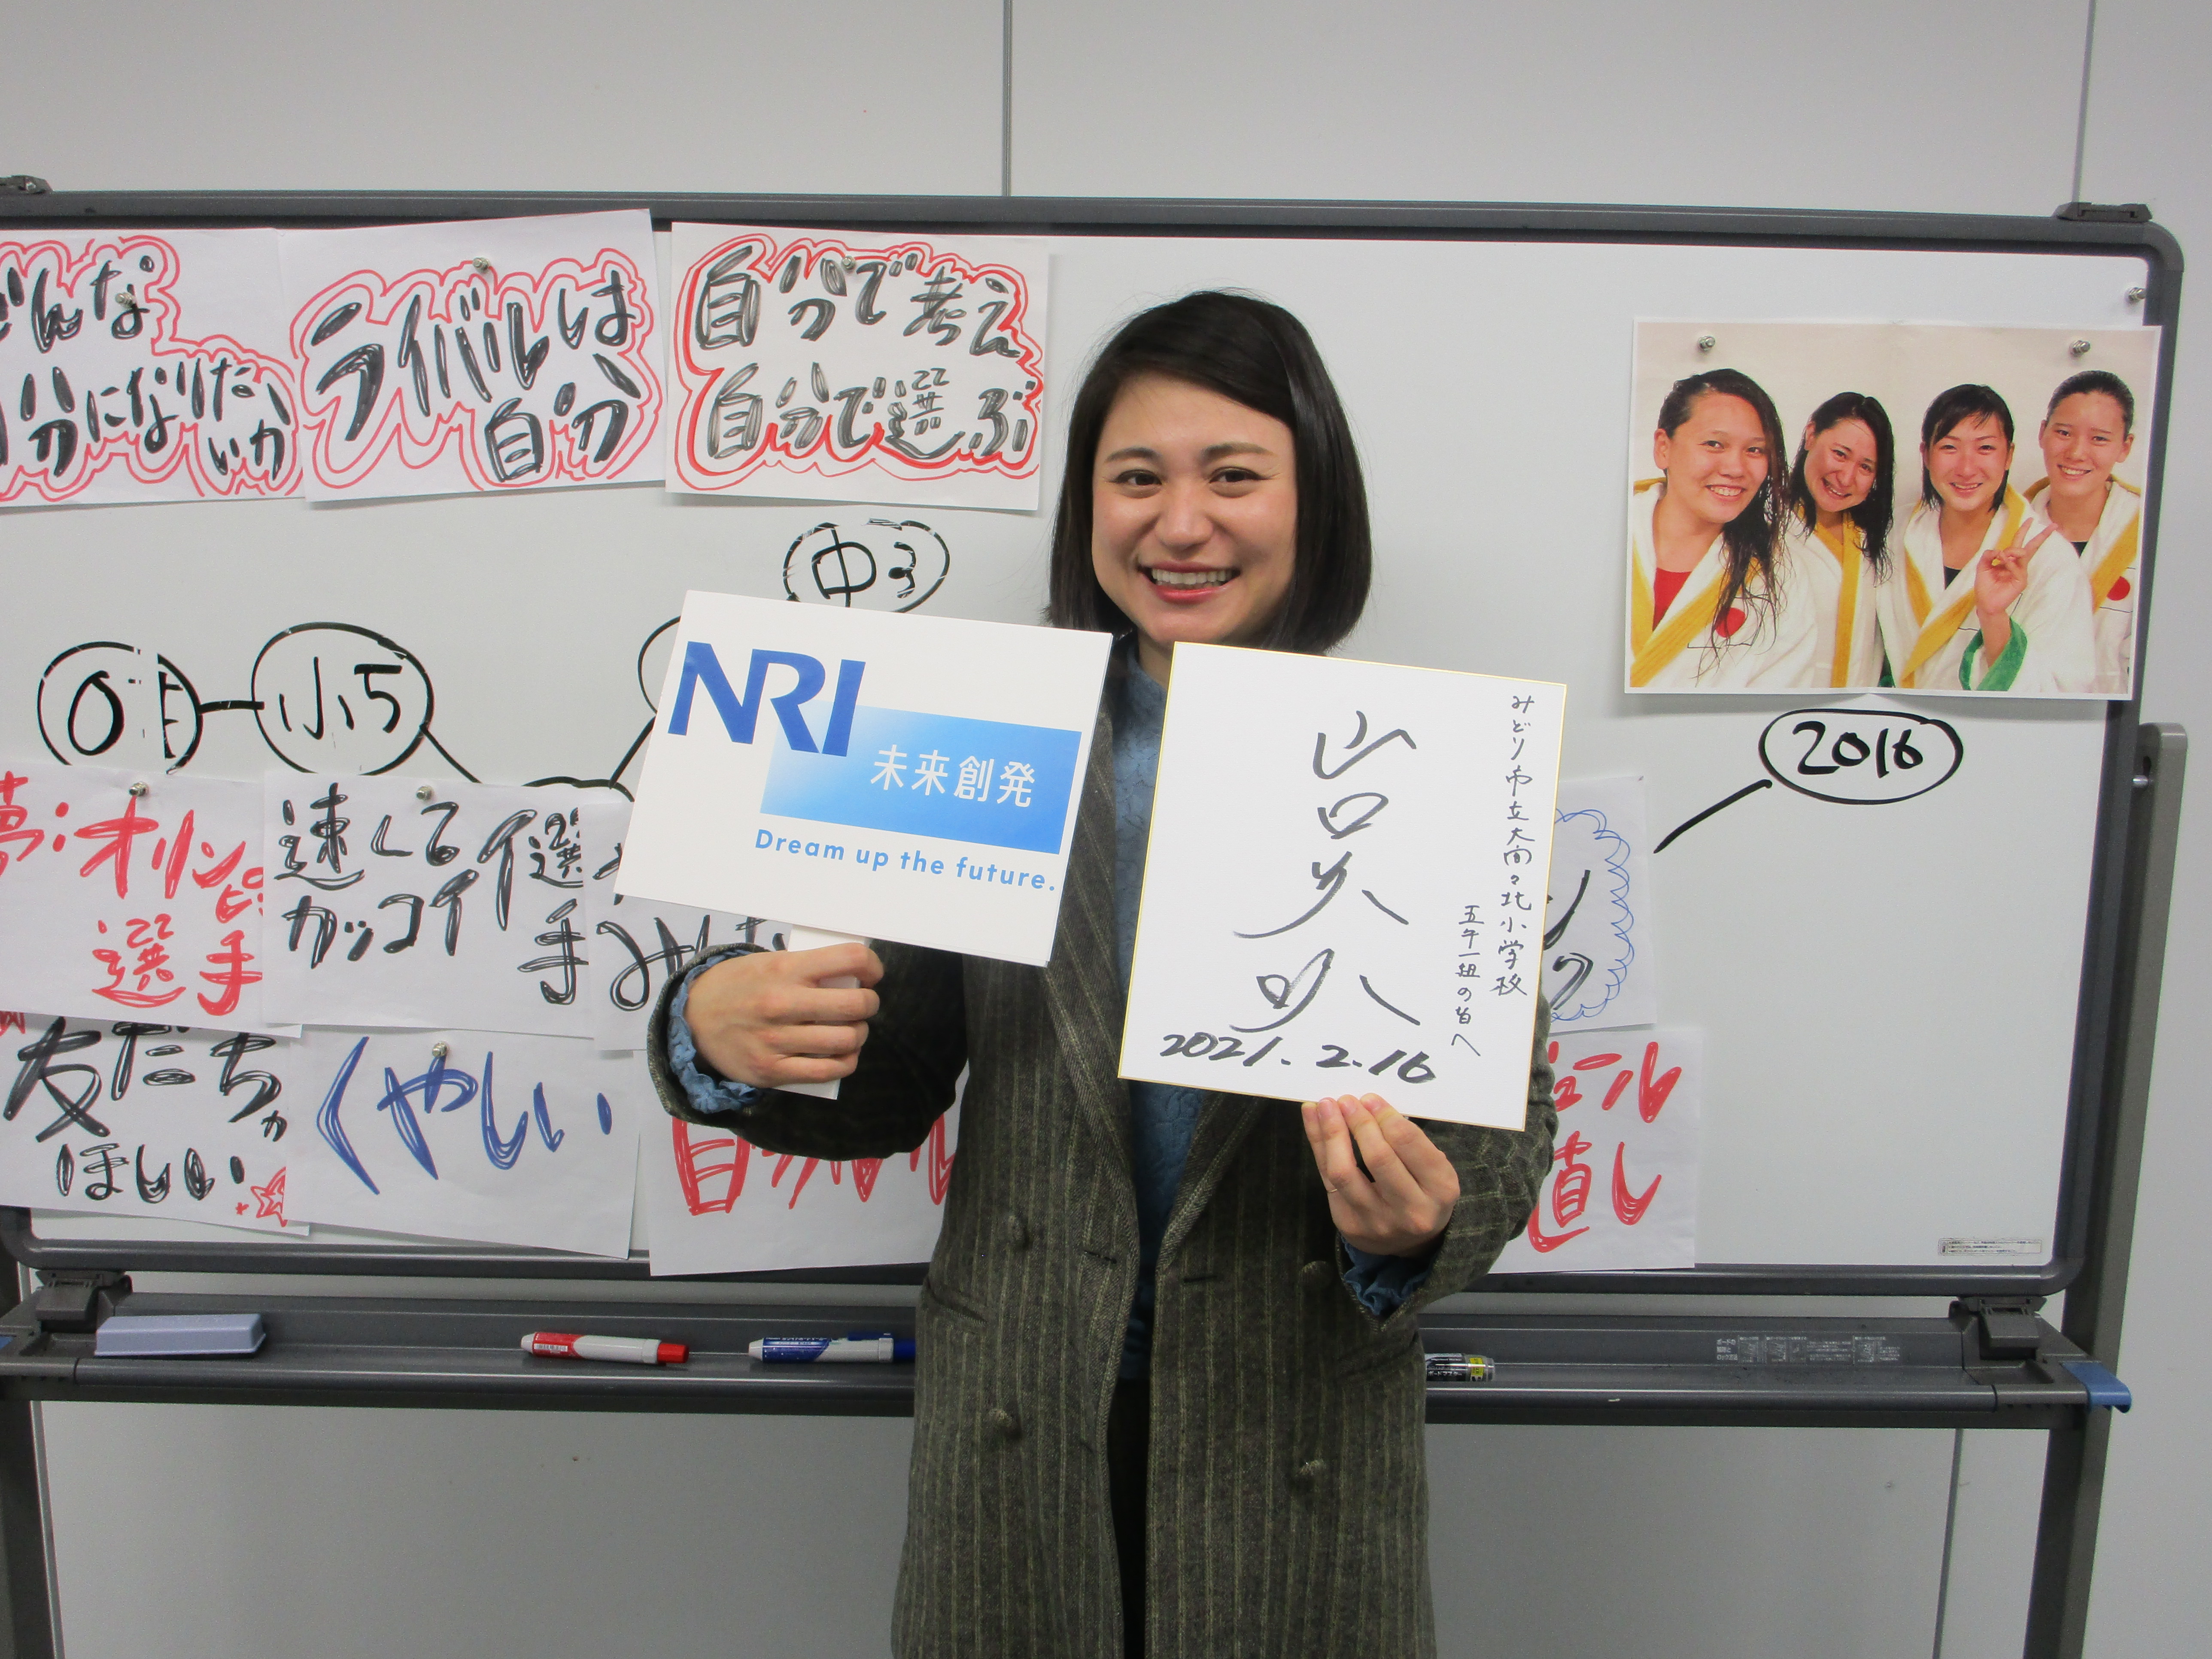 どんな
自分になりたいか
ライバルは
自分
自分で考え
自分で選ぶ
中3
0才
小5
2016
夢:オリンピ
選手
速くて
カッコイイ選
手
友だちが
ほしい
くやしい
直し
NRI
未来創発
Dream up the future.
みどり市立大間々北小学校
五年一組の皆へ
山口美咲
2021.2.16